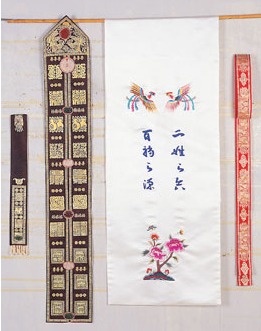 二姓之合
百福之源